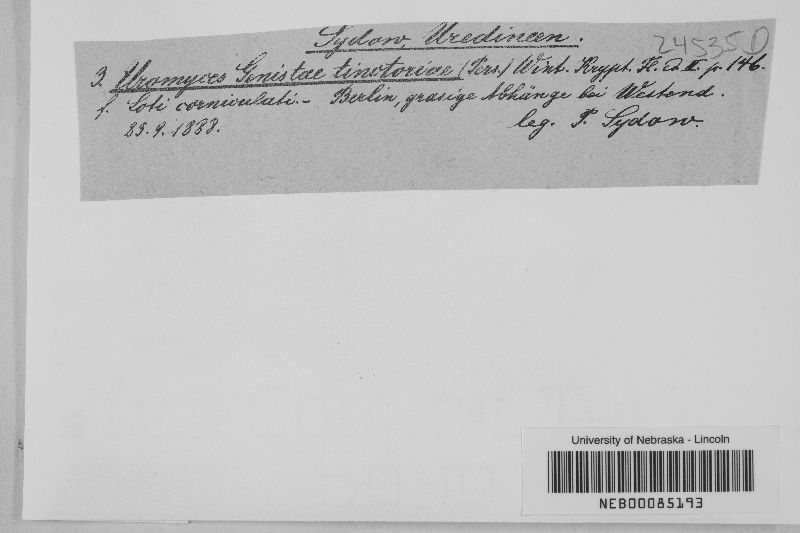 Sydow, Uredineen.
24535D
3. Uromyces Genistae tinctoriae (Pers.) Wint. Krypt. Fl. ed II. p. 146.
f. Loti corniculati. - Berlin, grasige Abhänge bei Westend.
23.9.1888.
leg. P. Sydow.
University of Nebraska - Lincoln
NEB00085193